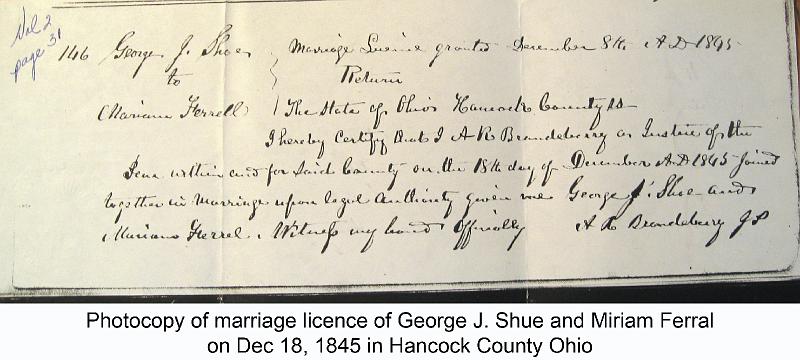 Vol 2
page 31
146 George J. Shoe } Marriage License granted December 8th A D 1845
to Return
Mariann Ferrell } The State of Ohio Hancock County ss
I hereby Certify that I A R Brandeberry a Justice of the
Peace within and for said County on the 18th day of December A D 1845 joined
together in Marriage upon legal Authority given me George J. Shoe and
Mariann Ferrel. Witness my hand Officially A R Brandeberry J P
Photocopy of marriage licence of George J. Shue and Miriam Ferral
on Dec 18, 1845 in Hancock County Ohio